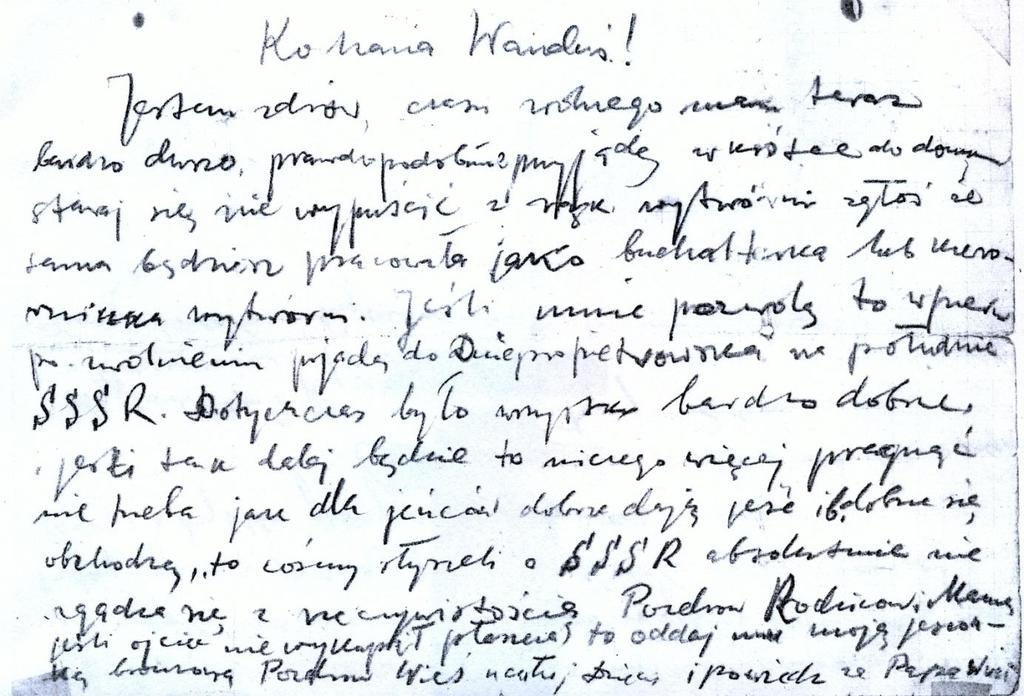 Kohana Wanduś!
Jestem zdrów, czasu wolnego mam teraz
bardzo dużo, prawdopodobnie przyjadę wkrótce do domu
staraj się nie wypuścić z rąk wytwórni zgłoś że
sama będziesz pracowała jako buchalterka lub kiero-
wniczka wytwórni. Jeśli mnie pozwolą to wpierw
po zwolnieniu pojadę do Dniepropietrowska na południe
SSSR. Dotychczas było wszystko bardzo dobrze,
jeśli tak dalej będzie to niczego więcej pragnąć
nie trzeba jak dla jeńców dobrze dają jeść i dobrze się
obchodzą, to cośmy słyszeli o SSSR absolutnie nie
zgadza się z rzeczywistością Pozdrów Rodziców i Mamę
jeśli ojciec nie wykupił płaszcza to oddaj mu moją jesion-
kę bronzową Pozdrów Wieś ucałuj i powiedz że Papa